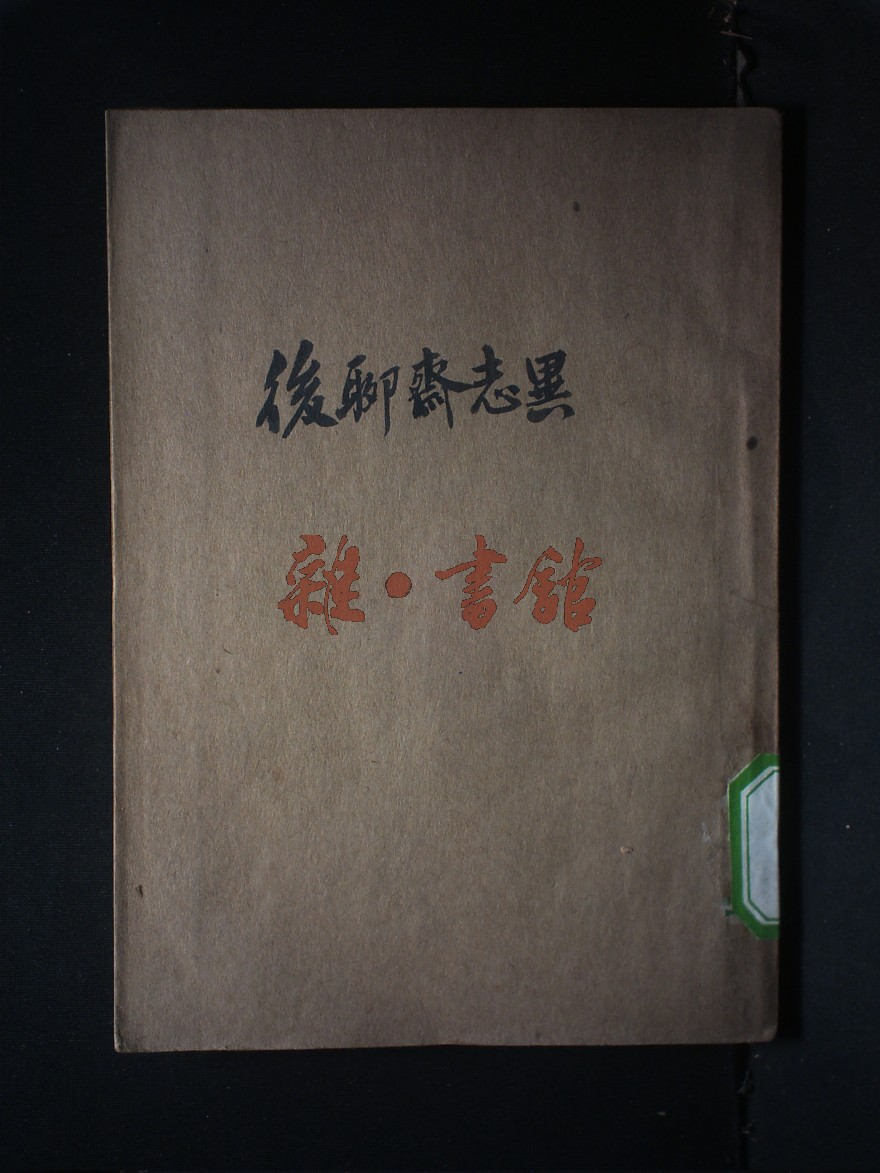 後聊齋志異
雜·書館